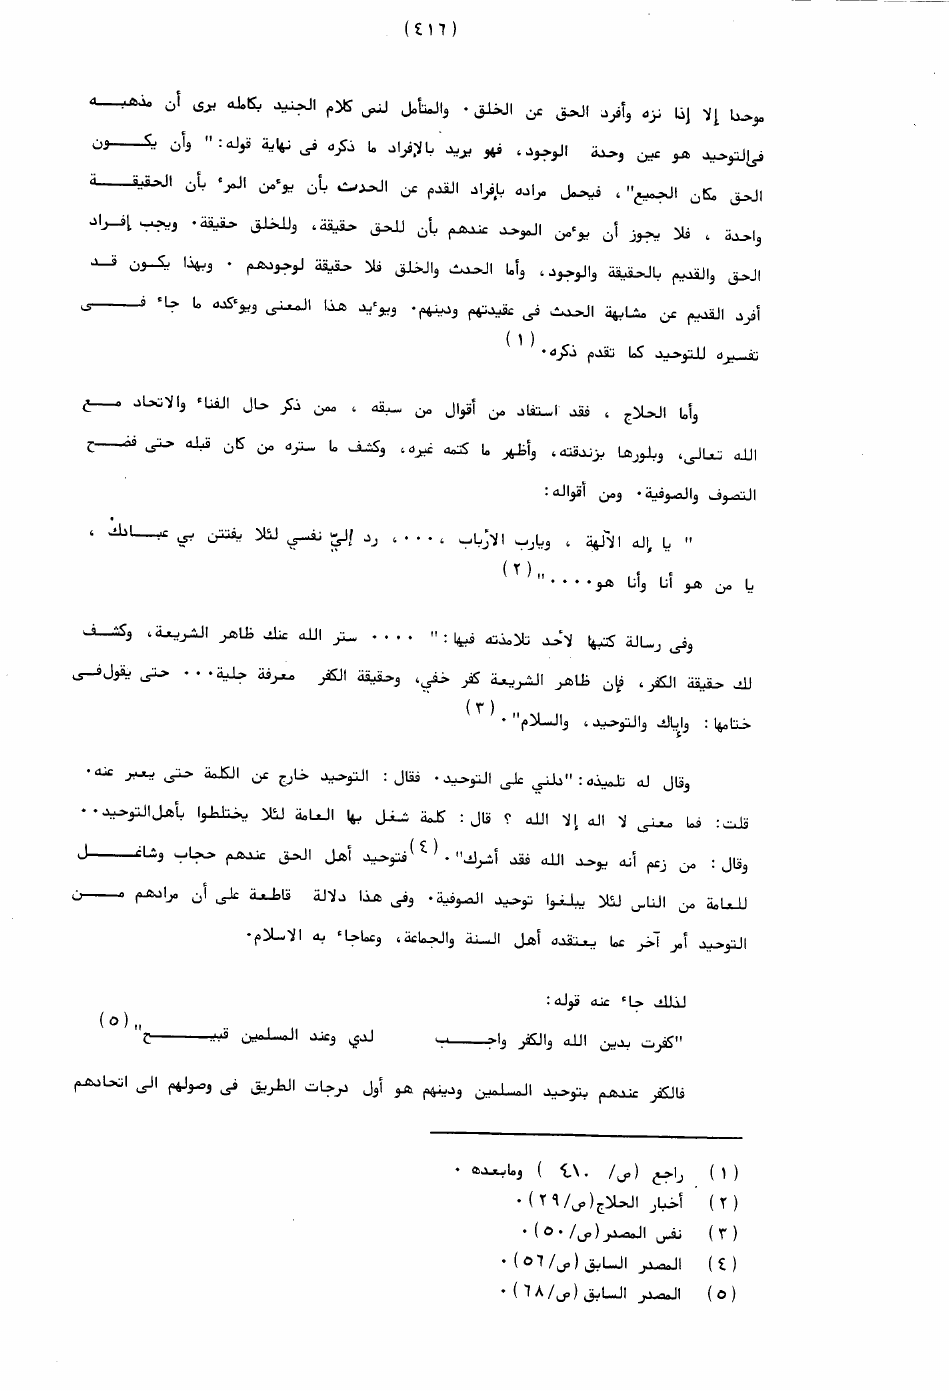 (٤١٦)
موحدا إلا إذا نزه وأفرد الحق عن الخلق. والمتأمل لنص كلام الجنيد بكامله يرى أن مذهبه
في التوحيد هو عين وحدة الوجود، فهو يريد بالإفراد ما ذكره في نهاية قوله: " وأن يكون
الحق مكان الجميع"، فيحمل مراده بإفراد القدم عن الحدث بأن يوءمن المرء بأن الحقيقة
واحدة ، فلا يجوز أن يوءمن الموحد عندهم بأن للحق حقيقة، وللخلق حقيقة. ويجب إفراد
الحق والقديم بالحقيقة والوجود، وأما الحدث والخلق فلا حقيقة لوجودهم . وبهذا يكون قد
أفرد القديم عن مشابهة الحدث في عقيدتهم ودينهم. ويوءيد هذا المعنى ويوءكده ما جاء في
تفسيره للتوحيد كما تقدم ذكره.(١)
وأما الحلاج ، فقد استفاد من أقوال من سبقه ، ممن ذكر حال الفناء والاتحاد مع
الله تعالى، وبلورها بزندقته، وأظهر ما كتمه غيره، وكشف ما ستره من كان قبله حتى فضح
التصوف والصوفية. ومن أقواله:
" يا إله الآلهة ، ويارب الأرباب ،....، رد إليّ نفسي لئلا يفتتن بي عبادك ،
يا من هو أنا وأنا هو...."(٢)
وفى رسالة كتبها لأحد تلامذته فيها: " .... ستر الله عنك ظاهر الشريعة، وكشف
لك حقيقة الكفر، فإن ظاهر الشريعة كفر خفي، وحقيقة الكفر معرفة جلية... حتى يقول في
ختامها: وإياك والتوحيد، والسلام".(٣)
وقال له تلميذه: "دلني على التوحيد. فقال: التوحيد خارج عن الكلمة حتى يعبر عنه.
قلت: فما معنى لا اله إلا الله ؟ قال: كلمة شغل بها العامة لئلا يختلطوا بأهل التوحيد..
وقال: من زعم أنه يوحد الله فقد أشرك".(٤) فتوحيد أهل الحق عندهم حجاب وشاغل
للعامة من الناس لئلا يبلغوا توحيد الصوفية. وفى هذا دلالة قاطعة على أن مرادهم من
التوحيد أمر آخر عما يعتقده أهل السنة والجماعة، وعماجاء به الاسلام.
لذلك جاء عنه قوله:
"كفرت بدين الله والكفر واجب    لدي وعند المسلمين قبيح"(٥)
فالكفر عندهم بتوحيد المسلمين ودينهم هو أول درجات الطريق في وصولهم الى اتحادهم
(١) راجع (ص/ ٤١٠ ) ومابعده .
(٢) أخبار الحلاج(ص/٢٩).
(٣) نفس المصدر(ص/٥٠).
(٤) المصدر السابق(ص/٥٦).
(٥) المصدر السابق(ص/٦٨).